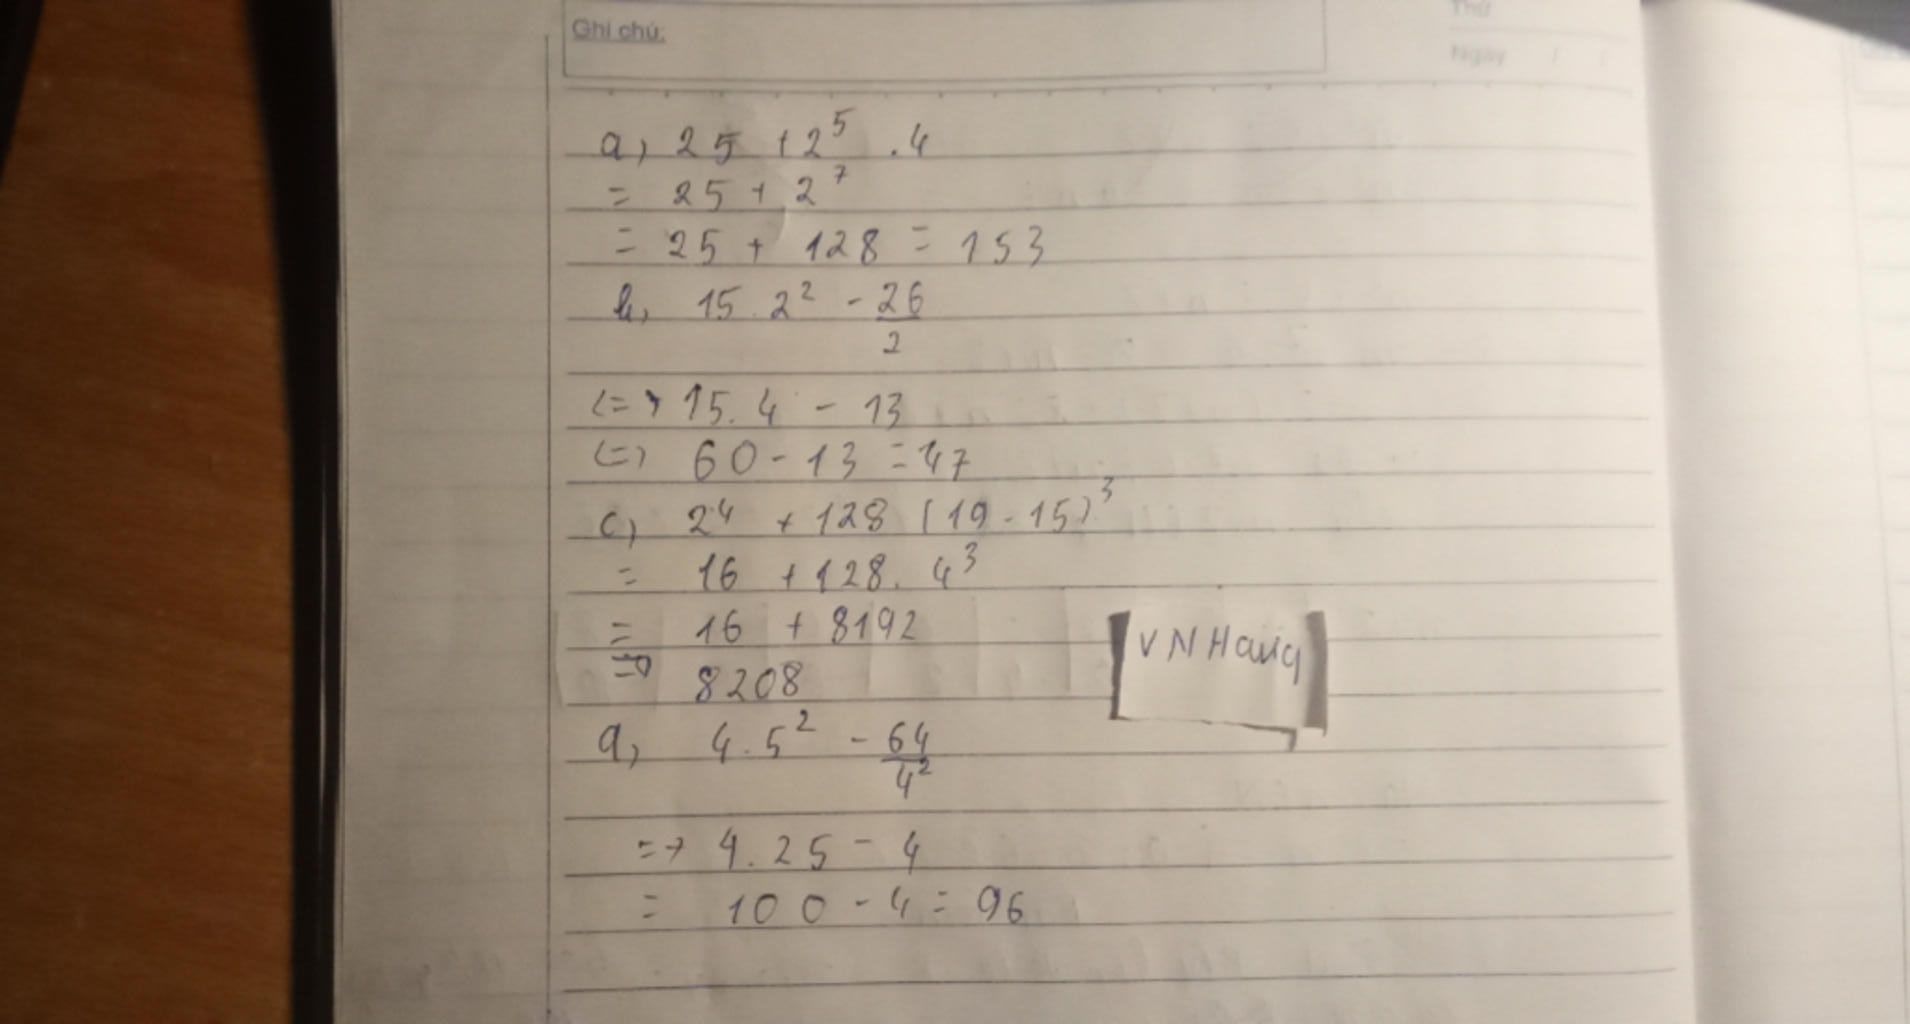 Ghi chú:
Thứ
Ngày
a, 25 + 2⁵ . 4
= 25 + 2⁷
= 25 + 128 = 153
b, 15 . 2² - 26/2
<=> 15 . 4 - 13
<=> 60 - 13 = 47
c, 2⁴ + 128 (19 - 15)³
= 16 + 128 . 4³
= 16 + 8192
=> 8208
d, 4 . 5² - 64/4²
=> 4 . 25 - 4
= 100 - 4 = 96
VN Hang